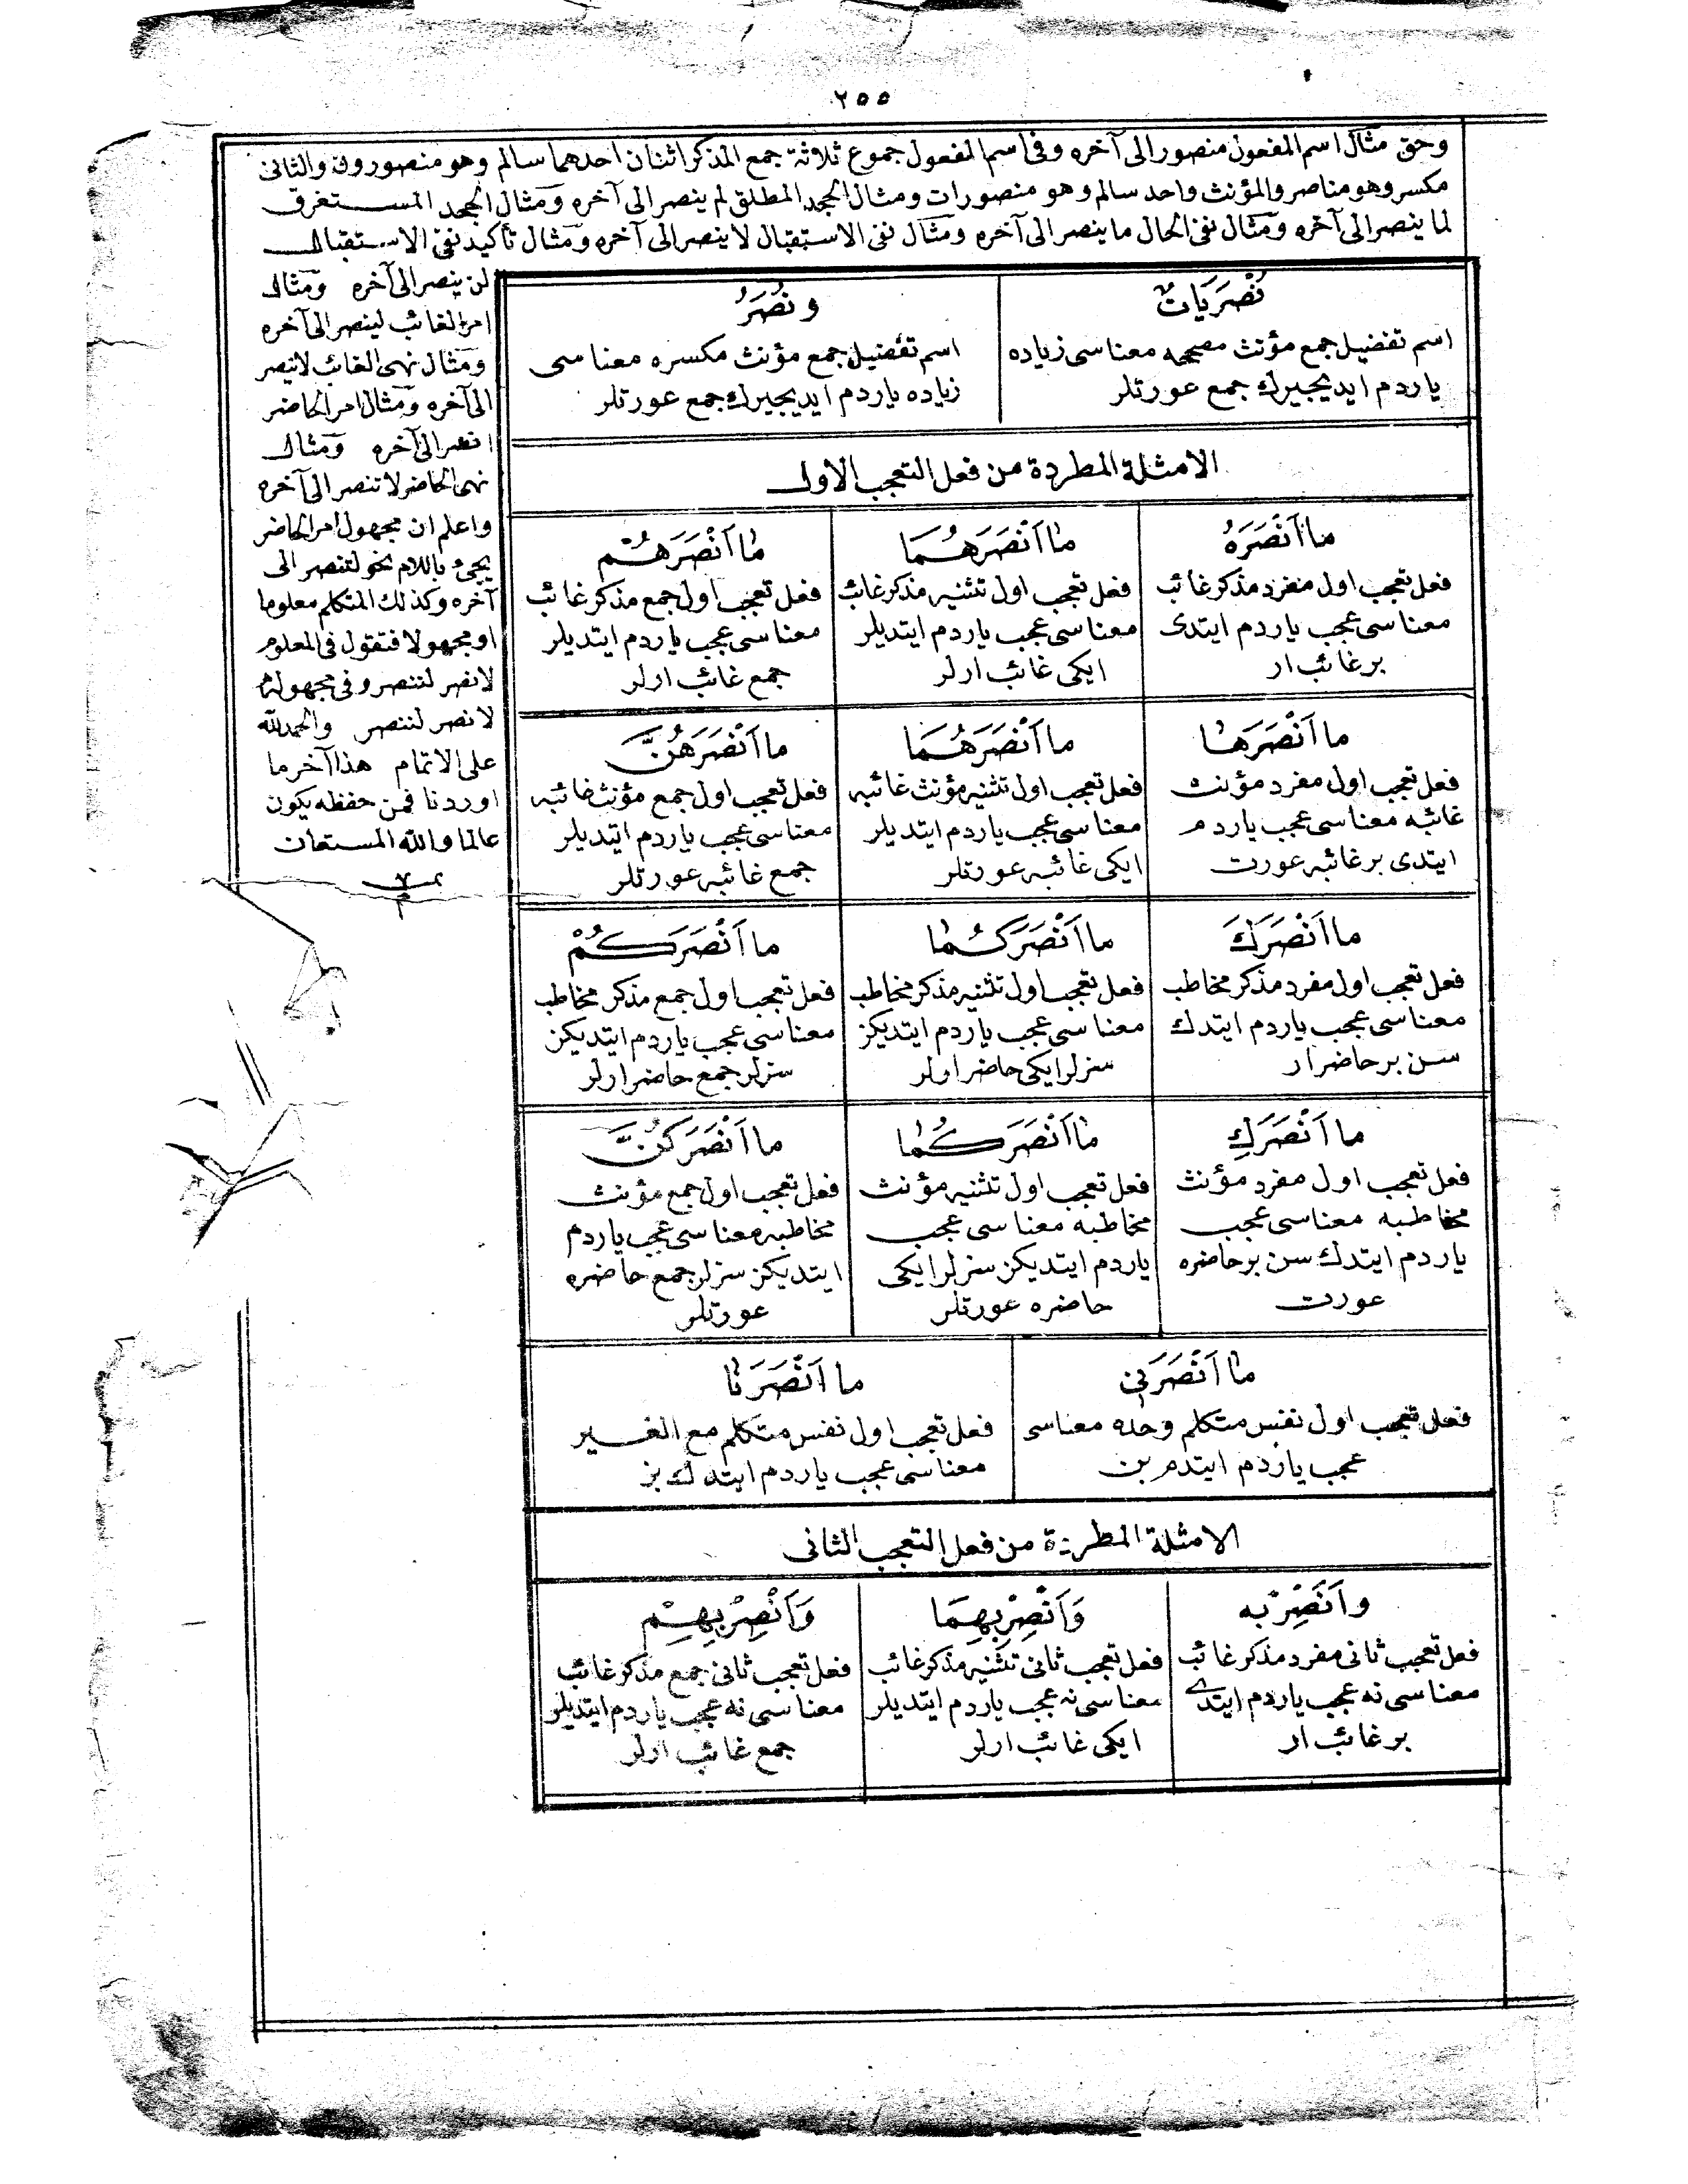 ٢٥٥
وحق مثال اسم المفعول منصور الى آخره وفى اسم المفعول جموع ثلاثة جمع المذكر اثنان احدهما سالم وهو منصورون والثانى
مكسر وهو مناصر والمؤنث واحد سالم وهو منصورات ومثال الجحد المطلق لم ينصر الى آخره ومثال الجحد المستغرق
لما ينصر الى آخره ومثال نفى الحال ما ينصر الى آخره ومثال نفى الاستقبال لا ينصر الى آخره ومثال تأكيد نفى الاستقبال
لن ينصر الى آخره ومثال
امر الغائب لينصر الى آخره
ومثال نهى الغائب لا ينصر
الى آخره ومثال امر الحاضر
انصر الى آخره ومثال
نهى الحاضر لا تنصر الى آخره
واعلم ان مجهول امر الحاضر
يجئ باللام نحو لتنصر الى
آخره وكذلك المتكلم معلوما
او مجهولا فتقول فى المعلوم
لانصر لننصر وفى مجهوله
لانصر لننصر والحمد لله
على الاتمام هذا آخر ما
اوردنا فمن حفظه يكون
عالما والله المستعان
نُصْرَيَاتٌ
اسم تفضيل جمع مؤنث مصححه معناسى زياده
ياردم ايديجيرك جمع عورتلر
ونُصَرُ
اسم تفضيل جمع مؤنث مكسره معناسى
زياده ياردم ايديجيرك جمع عورتلر
الامثلة المطردة من فعل التعجب الاول
ما اَنْصَرَهُ
فعل تعجب اول مفرد مذكر غائب
معناسى عجب ياردم ايتدى
بر غائب ار
ما اَنْصَرَهُمَا
فعل تعجب اول تثنيه مذكر غائب
معناسى عجب ياردم ايتديلر
ايكى غائب ارلر
ما اَنْصَرَهُمْ
فعل تعجب اول جمع مذكر غائب
معناسى عجب ياردم ايتديلر
جمع غائب ارلر
ما اَنْصَرَهَا
فعل تعجب اول مفرد مؤنث
غائبه معناسى عجب ياردم
ايتدى بر غائبه عورت
ما اَنْصَرَهُمَا
فعل تعجب اول تثنيه مؤنث غائبه
معناسى عجب ياردم ايتديلر
ايكى غائبه عورتلر
ما اَنْصَرَهُنَّ
فعل تعجب اول جمع مؤنث غائبه
معناسى عجب ياردم ايتديلر
جمع غائبه عورتلر
ما اَنْصَرَكَ
فعل تعجب اول مفرد مذكر مخاطب
معناسى عجب ياردم ايتدك
سن بر حاضر ار
ما اَنْصَرَكُمَا
فعل تعجب اول تثنيه مذكر مخاطب
معناسى عجب ياردم ايتديكز
سزلر ايكى حاضر ارلر
ما اَنْصَرَكُمْ
فعل تعجب اول جمع مذكر مخاطب
معناسى عجب ياردم ايتديكز
سزلر جمع حاضر ارلر
ما اَنْصَرَكِ
فعل تعجب اول مفرد مؤنث
مخاطبه معناسى عجب
ياردم ايتدك سن بر حاضره
عورت
ما اَنْصَرَكُمَا
فعل تعجب اول تثنيه مؤنث
مخاطبه معناسى عجب
ياردم ايتديكز سزلر ايكى
حاضره عورتلر
ما اَنْصَرَكُنَّ
فعل تعجب اول جمع مؤنث
مخاطبه معناسى عجب ياردم
ايتديكز سزلر جمع حاضره
عورتلر
ما اَنْصَرَنِى
فعل تعجب اول نفس متكلم وحده معناسى
عجب ياردم ايتدم بن
ما اَنْصَرَنَا
فعل تعجب اول نفس متكلم مع الغير
معناسى عجب ياردم ايتدك بز
الامثلة المطردة من فعل التعجب الثانى
واَنْصِرْ بِه
فعل تعجب ثانى مفرد مذكر غائب
معناسى نه عجب ياردم ايتدى
بر غائب ار
وَاَنْصِرْ بِهِمَا
فعل تعجب ثانى تثنيه مذكر غائب
معناسى نه عجب ياردم ايتديلر
ايكى غائب ارلر
وَاَنْصِرْ بِهِمْ
فعل تعجب ثانى جمع مذكر غائب
معناسى نه عجب ياردم ايتديلر
جمع غائب ارلر